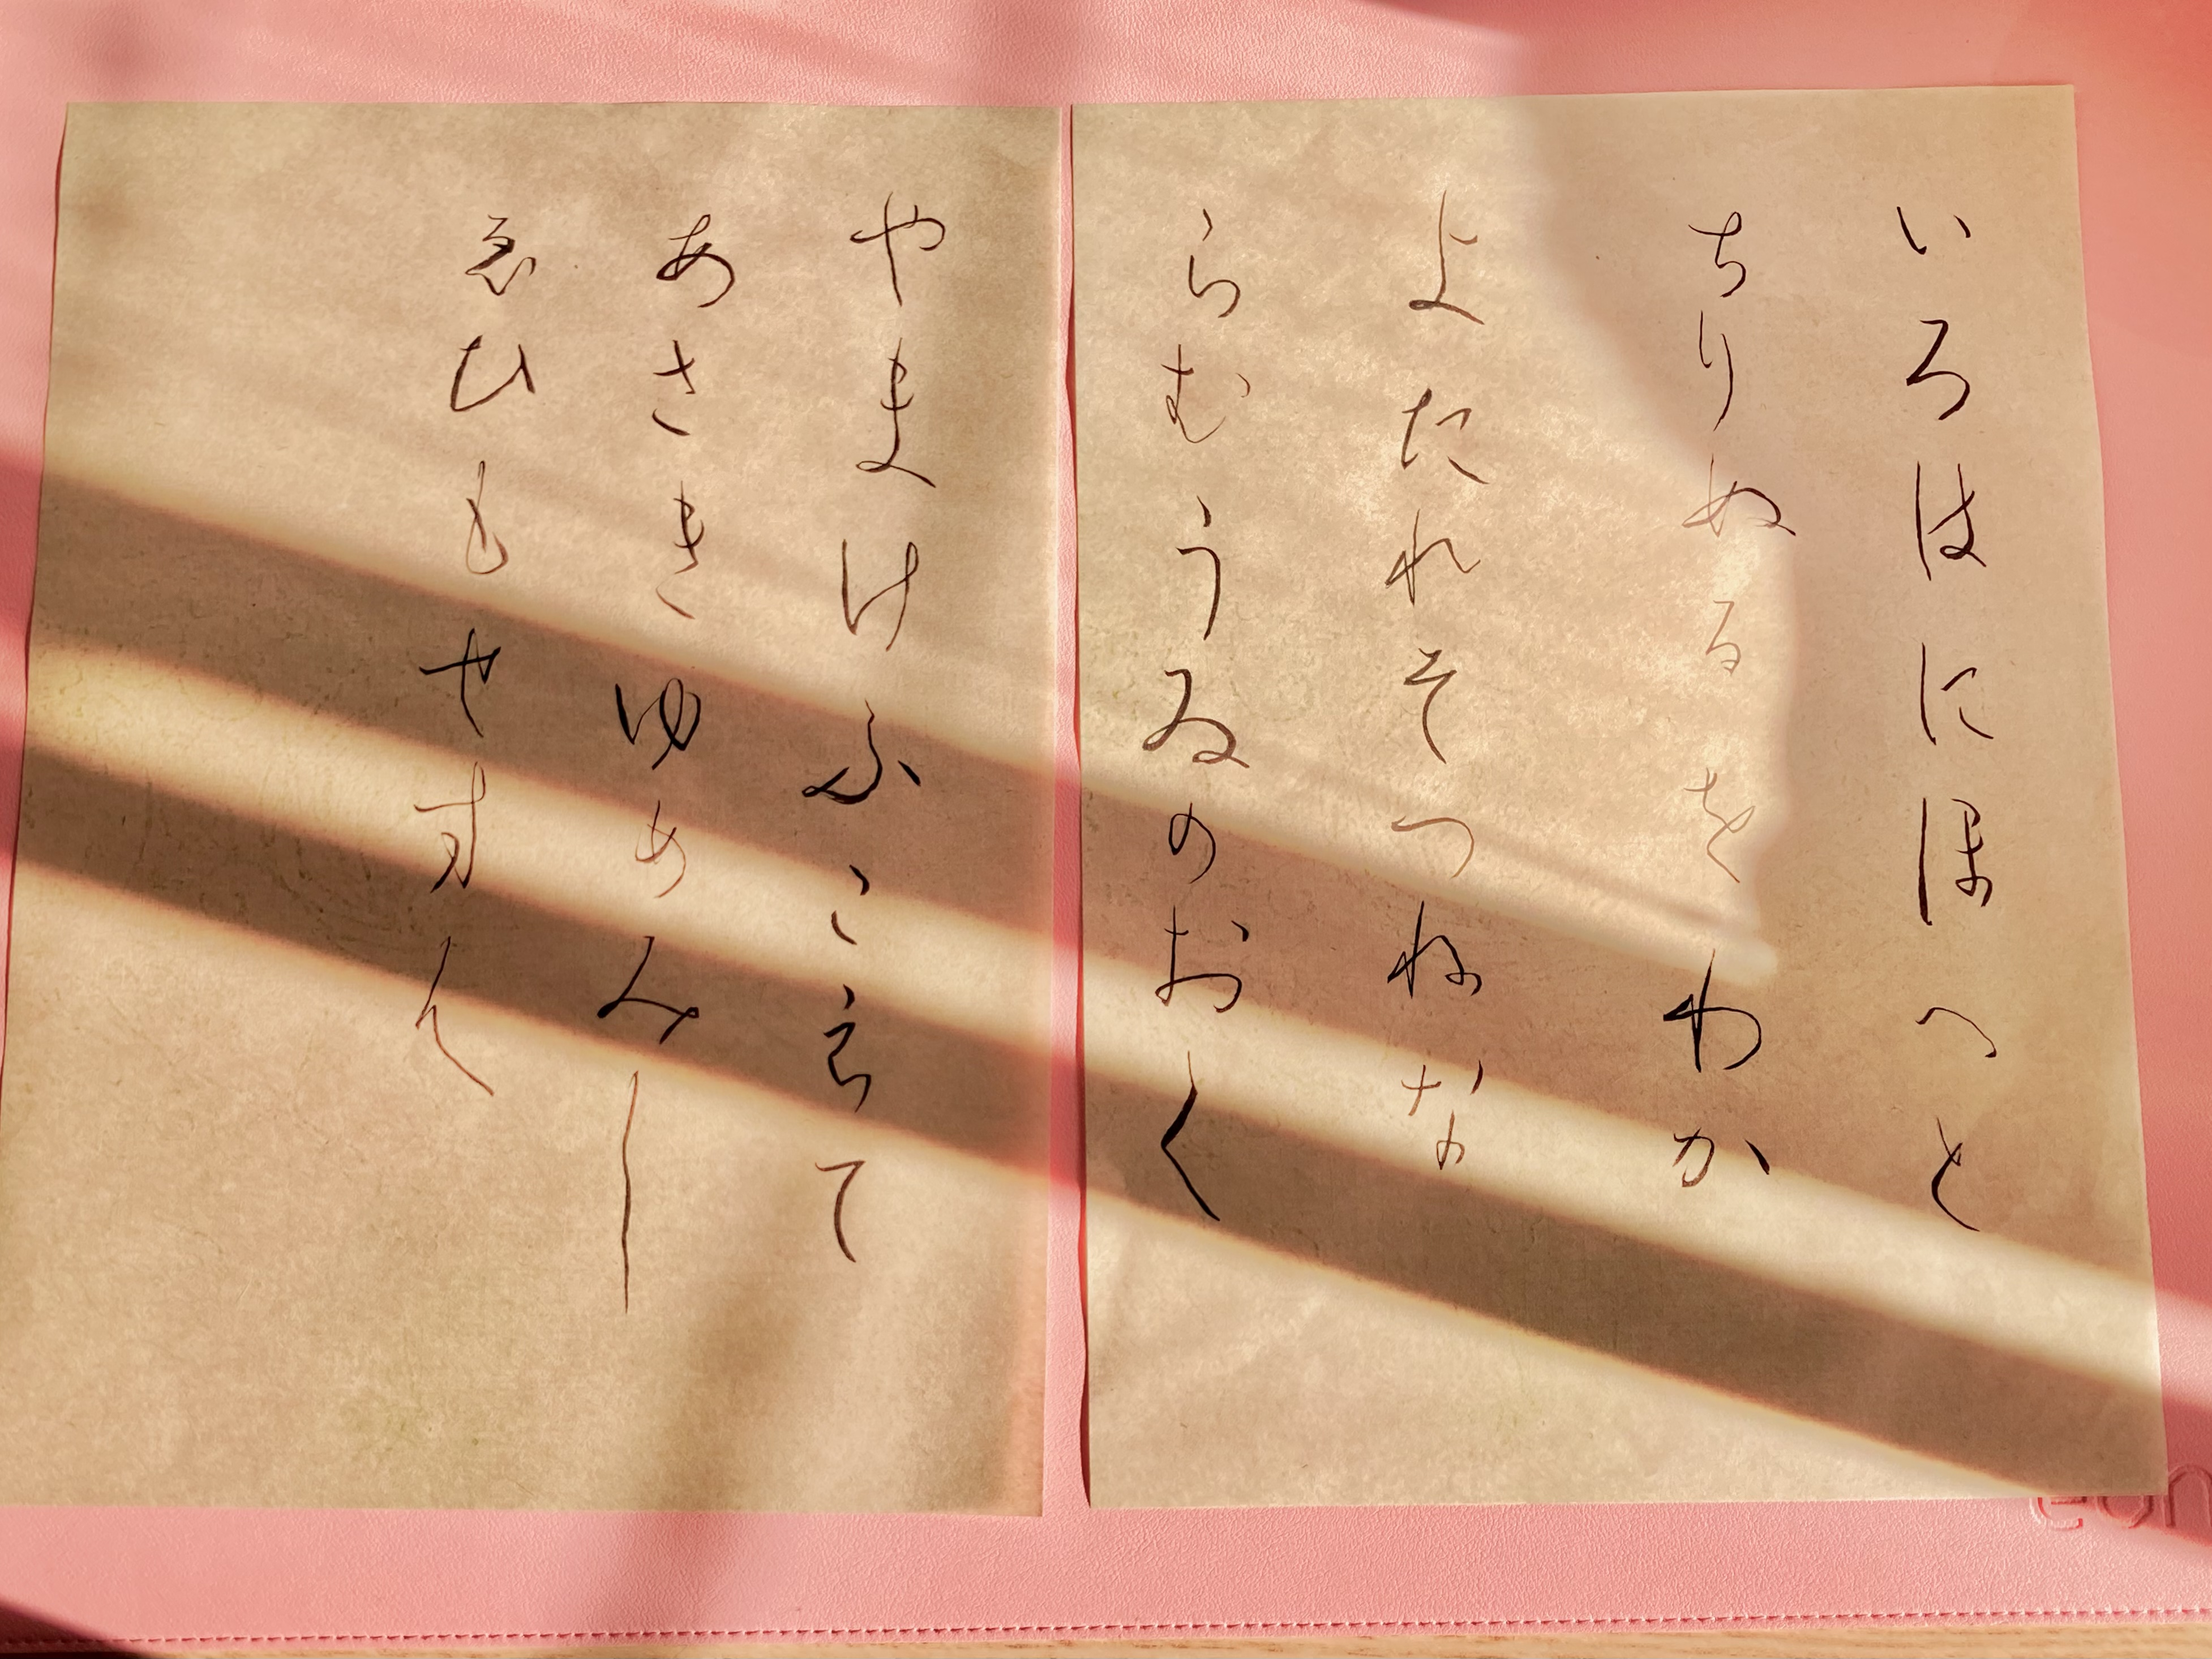 いろはにほへと
ちりぬるをわか
よたれそつねな
らむうゐのおく
やまけふこえて
あさきゆめみし
ゑひもせすん
eon